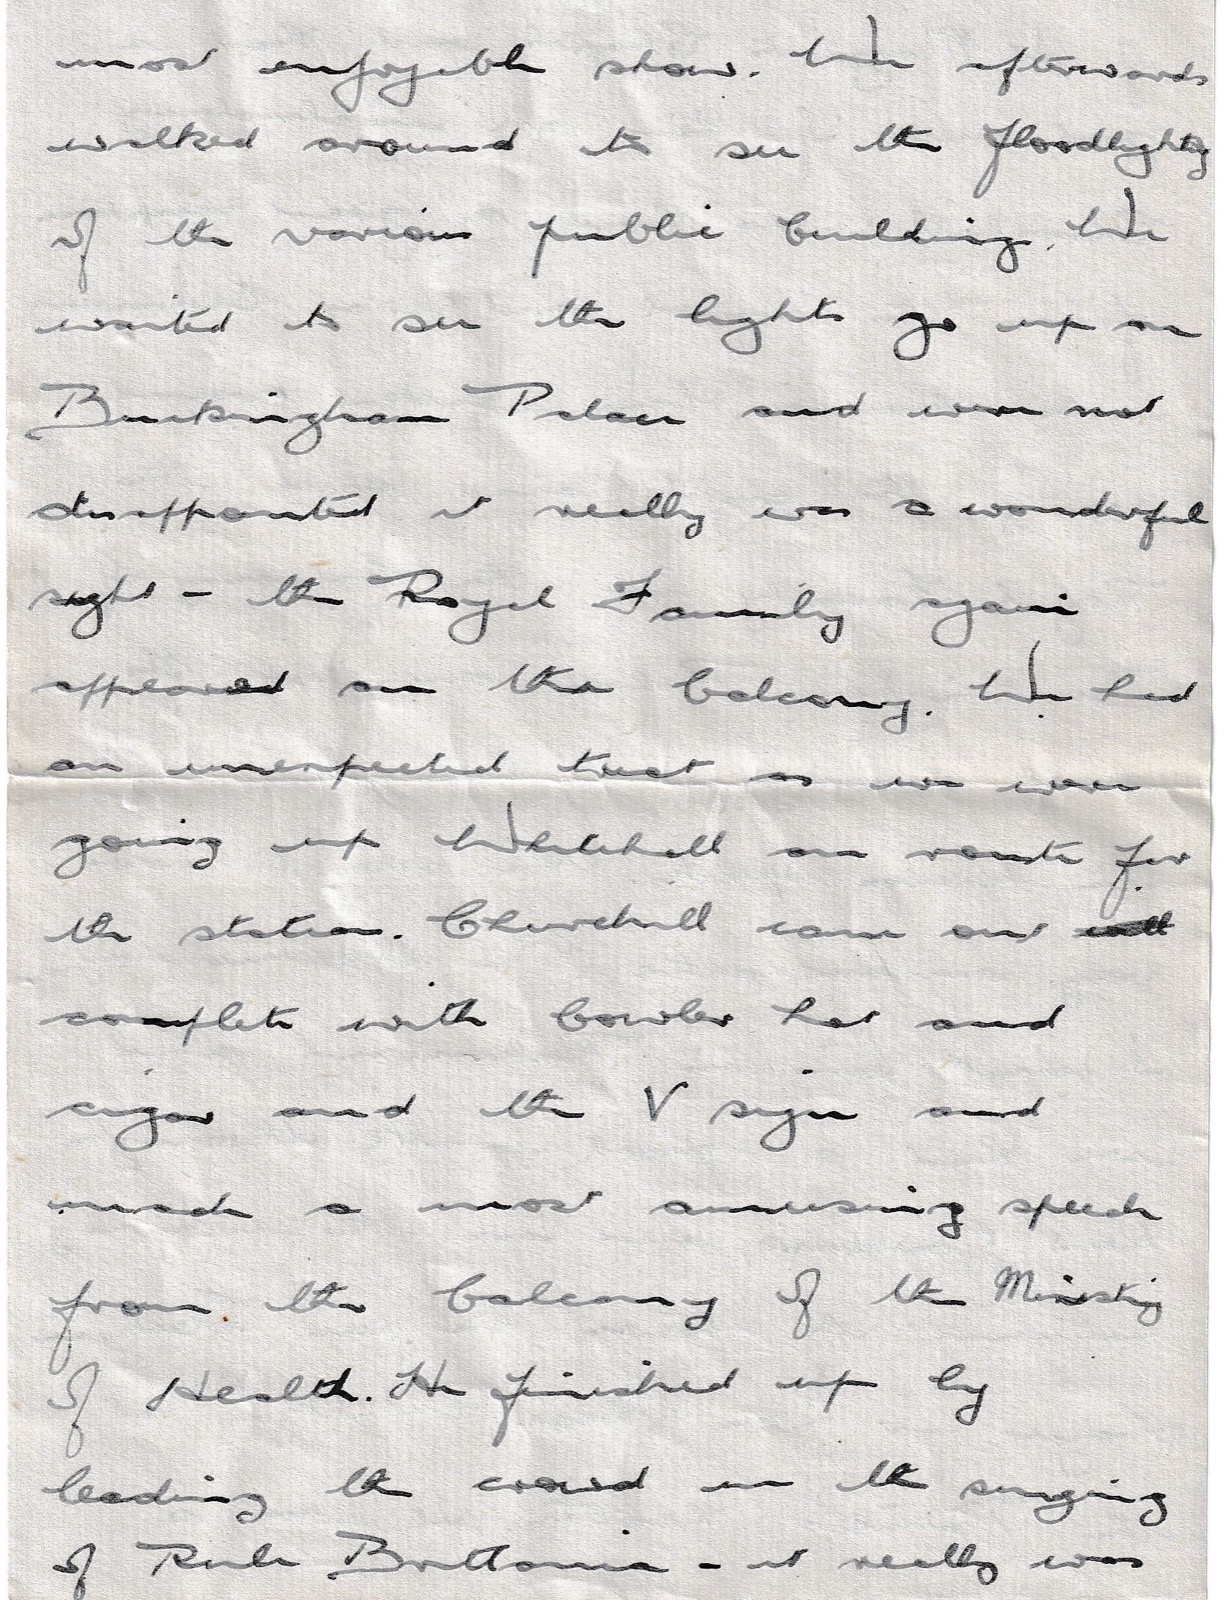 most enjoyable show. We afterwards
walked around to see the floodlighting
of the various public building. We
waited to see the lights go up on
Buckingham Palace and were not
disappointed it really was a wonderful
sight - the Royal Family again
appeared on the balcony. We had
an unexpected treat as we were
going up Whitehall on route for
the station. Churchill came out
complete with bowler hat and
cigar and the V sign and
made a most amusing speech
from the balcony of the Ministry
of Health. He finished up by
leading the crowd in the singing
of Rule Brittania - it really was